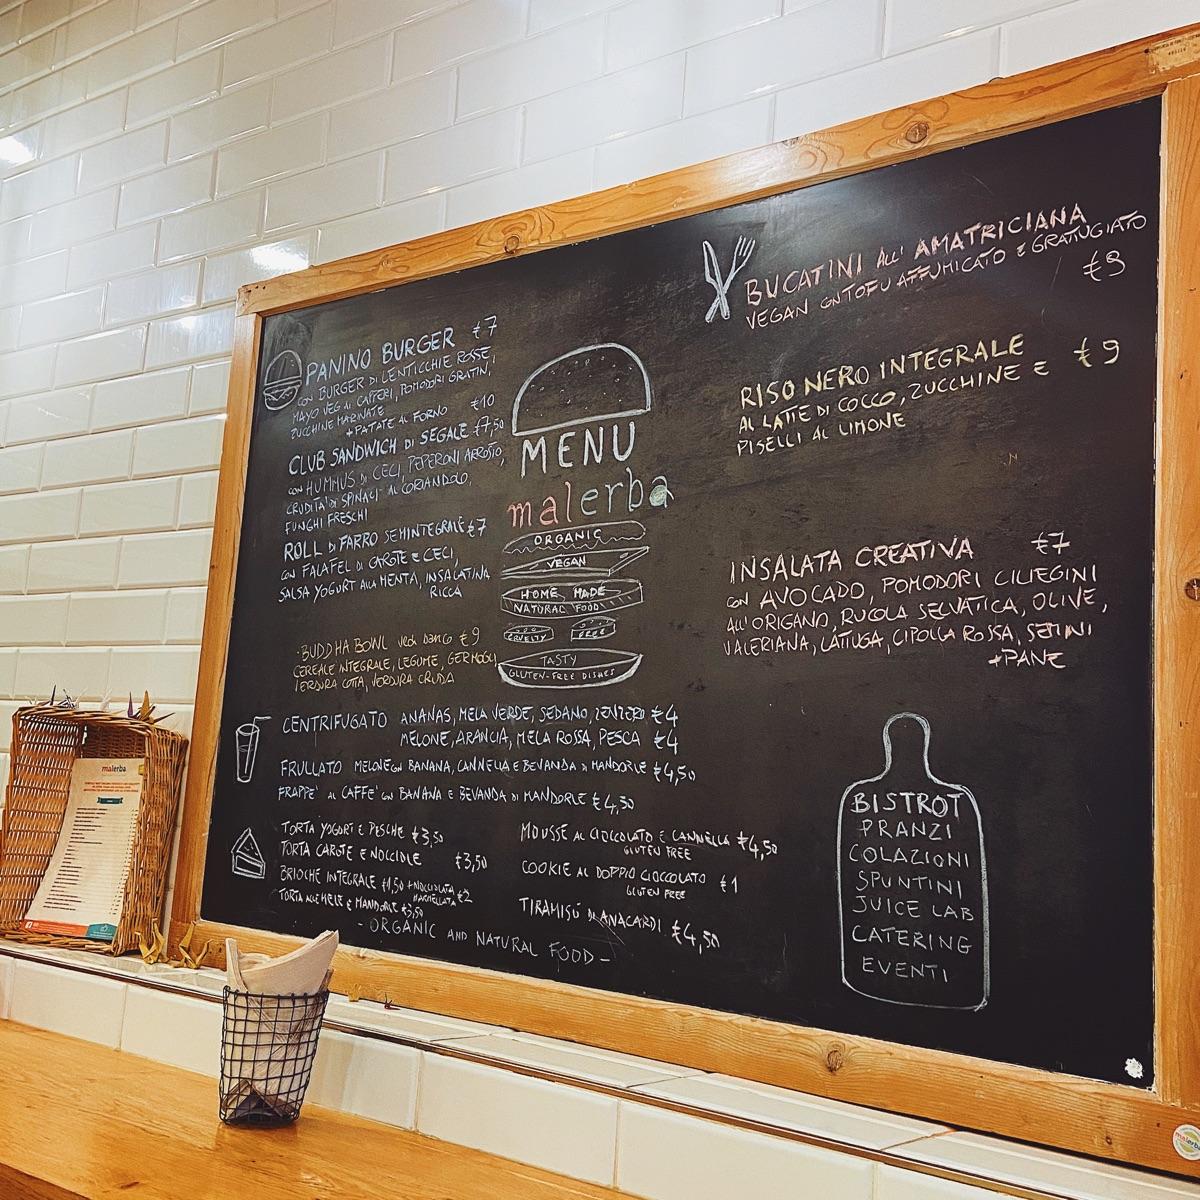 PANINO BURGER €7
CON BURGER DI LENTICCHIE ROSSE,
MAYO VEG AI CAPPERI, POMODORI GRATIN,
ZUCCHINE MARINATE
+ PATATE AL FORNO €10
CLUB SANDWICH DI SEGALE €7,50
CON HUMMUS DI CECI, PEPERONI ARROSTO,
CRUDITA' DI SPINACI AL CORIANDOLO,
FUNGHI FRESCHI
ROLL DI FARRO SEMINTEGRALE €7
CON FALAFEL DI CAROTE E CECI,
SALSA YOGURT ALLA MENTA, INSALATINA
RICCA
BUDDHA BOWL vedi banco €9
CEREALE INTEGRALE, LEGUME, GERMOGLI
VERDURA COTTA, VERDURA CRUDA
MENU
malerba
ORGANIC
VEGAN
HOME MADE
NATURAL FOOD
CRUELTY FREE
TASTY
GLUTEN-FREE DISHES
BUCATINI ALL' AMATRICIANA
VEGAN CON TOFU AFFUMICATO E GRATTUGIATO
€9
RISO NERO INTEGRALE €9
AL LATTE DI COCCO, ZUCCHINE E
PISELLI AL LIMONE
INSALATA CREATIVA €7
CON AVOCADO, POMODORI CILIEGINI
ALL'ORIGANO, RUCOLA SELVATICA, OLIVE,
VALERIANA, LATTUGA, CIPOLLA ROSSA, SEMINI
+PANE
CENTRIFUGATO ANANAS, MELA VERDE, SEDANO, ZENZERO €4
MELONE, ARANCIA, MELA ROSSA, PESCA €4
FRULLATO MELONE CON BANANA, CANNELLA E BEVANDA DI MANDORLE €4,50
FRAPPE' AL CAFFE' CON BANANA E BEVANDA DI MANDORLE €4,50
TORTA YOGURT E PESCHE €3,50
TORTA CAROTE E NOCCIOLE €3,50
BRIOCHE INTEGRALE €1,50 + NOCCIOLATA
MARMELLATA €2
TORTA ALLE MELE E MANDORLE €3,50
MOUSSE AL CIOCCOLATO E CANNELLA €4,50
GLUTEN FREE
COOKIE AL DOPPIO CIOCCOLATO €1
GLUTEN FREE
TIRAMISÙ DI ANACARDI €4,50
- ORGANIC AND NATURAL FOOD -
BISTROT
PRANZI
COLAZIONI
SPUNTINI
JUICE LAB
CATERING
EVENTI
malerba
malerba